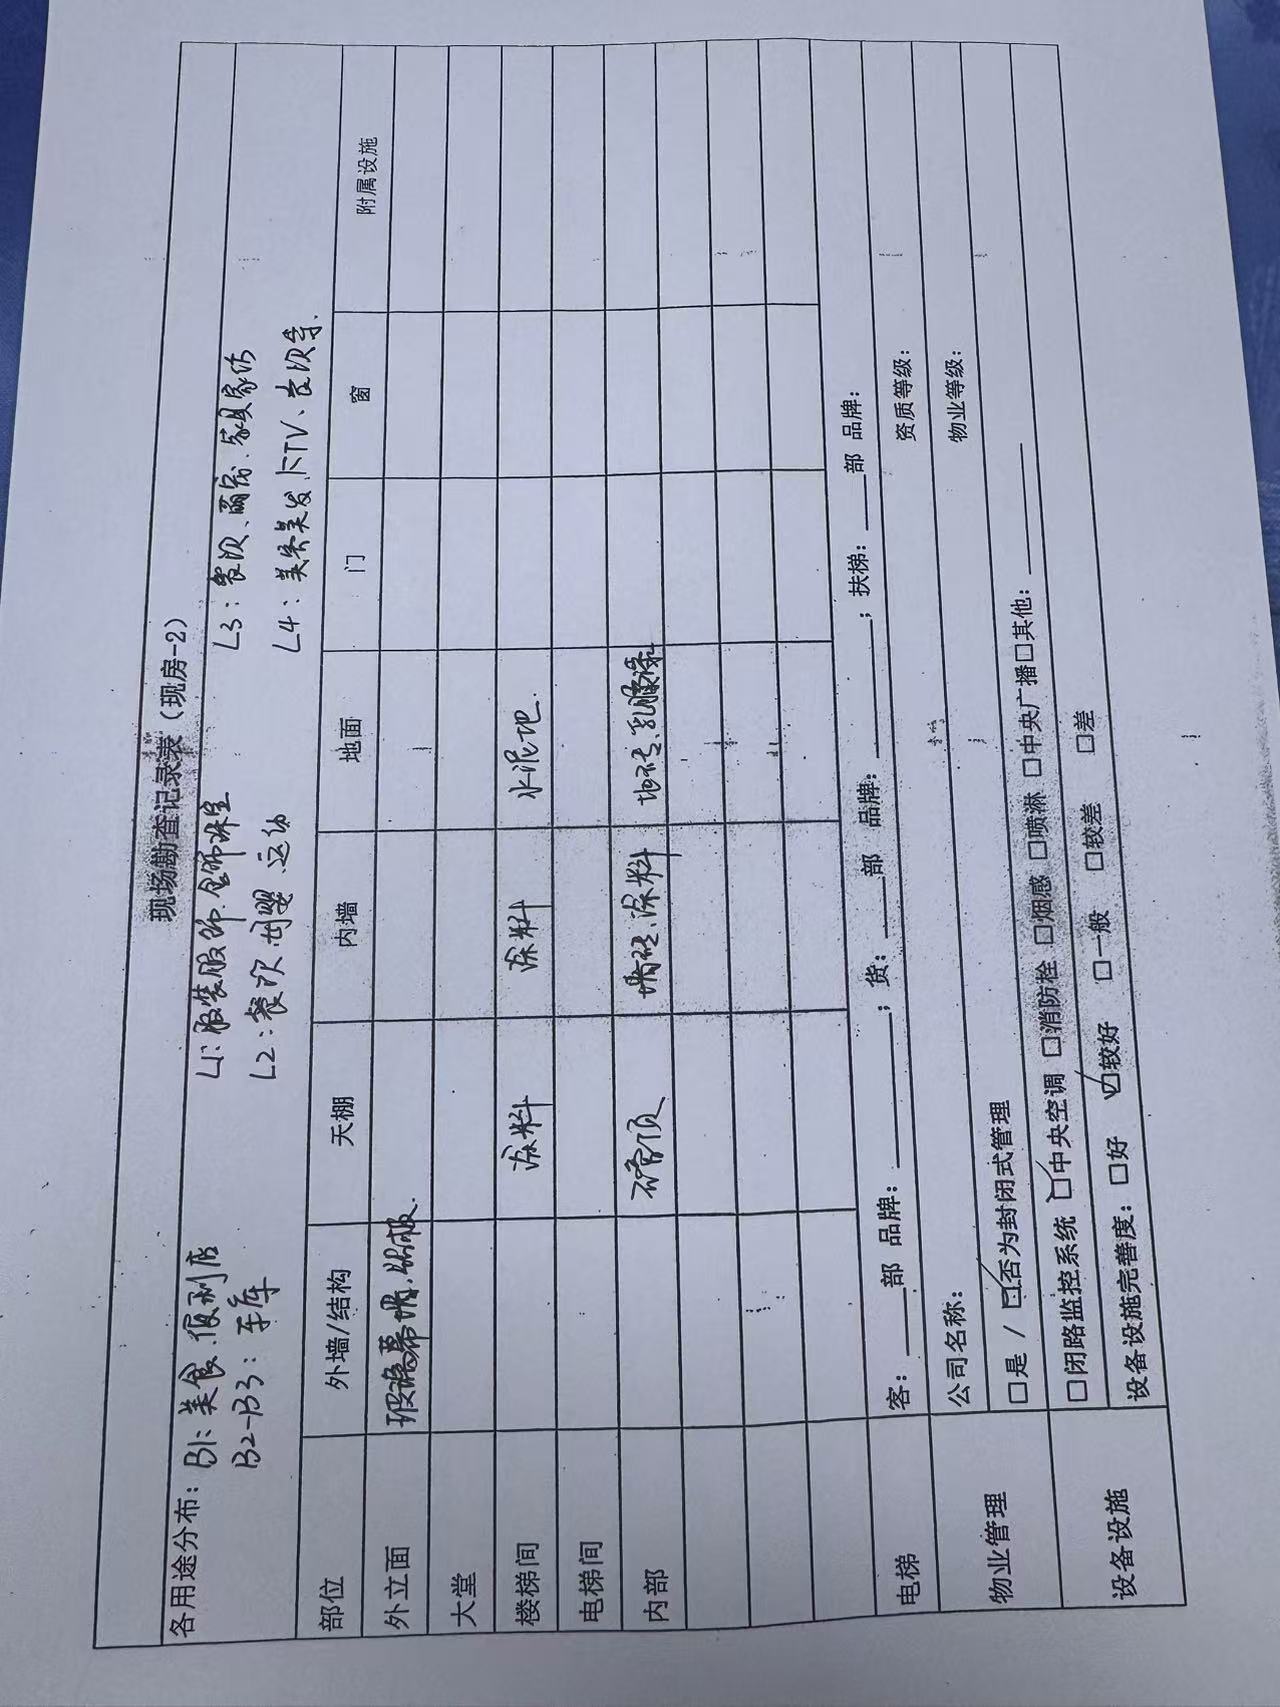 现场勘查记录表（现房-2）
各用途分布：B1：美食、便利店 L1：服装服饰、金饰珠宝 L3：餐饮、丽宝、家具家纺
B2-B3：车库 L2：餐饮、母婴、运动 L4：美容美发、KTV、餐饮等.
部位 外墙/结构 天棚 内墙 地面 门 窗 附属设施
外立面 玻璃幕墙、铝板.
大堂
楼梯间 涂料 涂料 水泥地.
电梯间
内部 吊顶 墙砖、涂料 地砖、乳胶漆
电梯 客：____部 品牌：________；货：____部 品牌：________；扶梯：____部 品牌：
物业管理 公司名称： 资质等级：
□是 / ☑否为封闭式管理 物业等级：
设备设施 □闭路监控系统 ☑中央空调 □消防栓 □烟感 □喷淋 □中央广播□其他：________
设备设施完善度：□好 ☑较好 □一般 □较差 □差